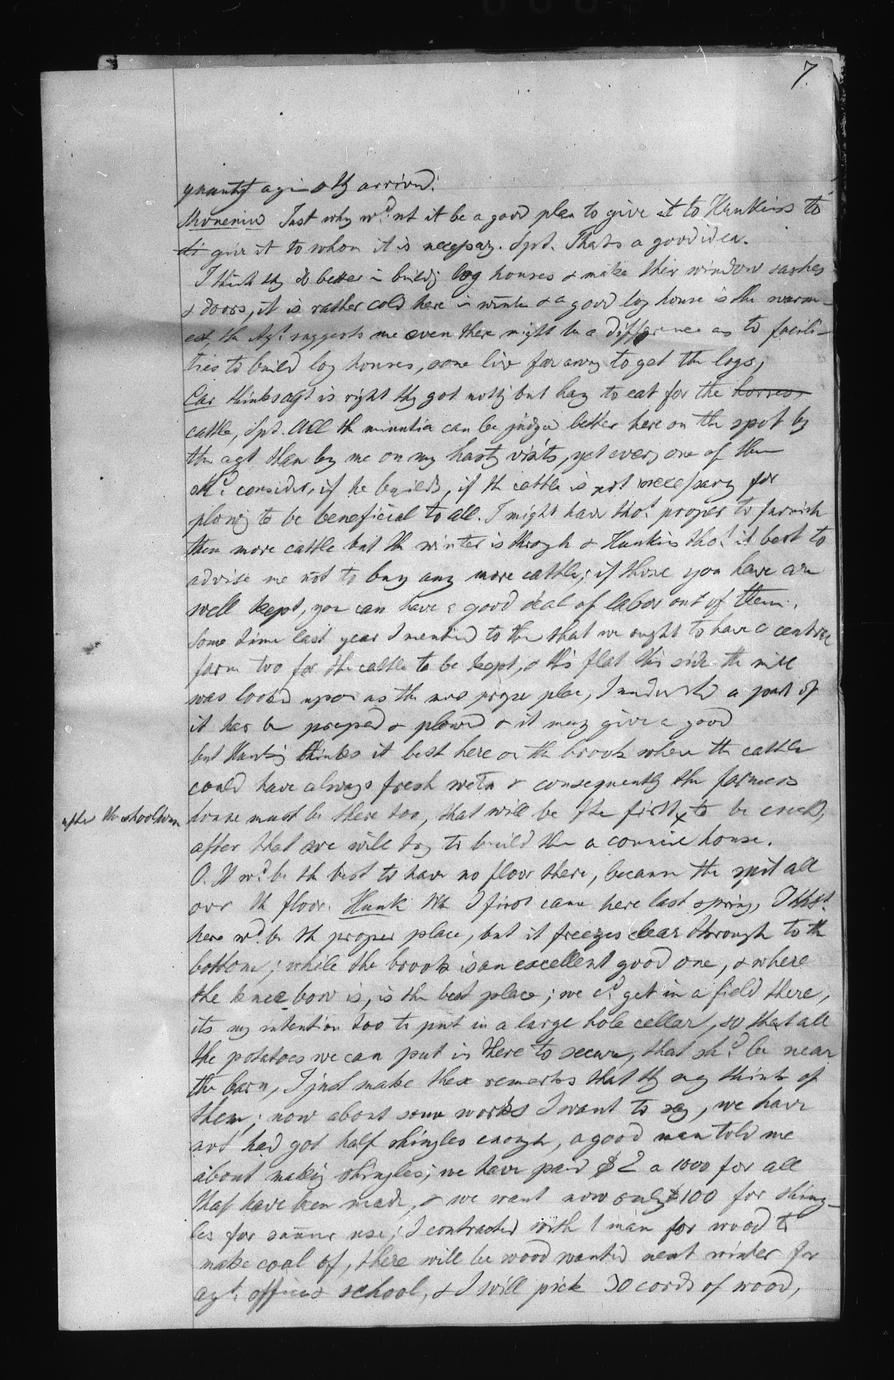 7
quantity agin & th arrived.
Just why wd. nt it be a good plan to give it to Hunkins to
di give it to whom it is necessary. Spt. Thats a good idea.
I think thy do better in buildg log houses & make their window sashes
& doors, it is rather cold here in winter & a good log house is the warm-
est, the Agt. suggests me even there might be a difference as to facili-
ties to build log houses, some live far away to get the logs;
Car thinks agt is right thy got nothg but hay to eat for the horses
cattle, Spt. All th minutia can be judged better here on the spot by
the agt than by me on my hasty visits, yet every one of them
shd. consider, if he builds, if th cattle is not necessary for
plowg to be beneficial to all. I might have thot. proper to furnish
them more cattle but th winter is through & Hunkins thot. it best to
advise me not to buy any more cattle; if those you have are
well kept, you can have a good deal of labor out of them.
Some time last year I mentiod to the that we ought to have a central
farm too for the cattle to be kept, & this flat this side the mill
was lookd upon as the most proper place, I understd a part of
it has be prepared & plowed & it may give a good
but Hunkig thinks it best here on the brook where the cattle
could have always fresh water & consequently the farmers
house must be there too, that will be the first x to be erectd,
after the schoolhouse
after that we will try to build the a council house.
O. It wd. be th best to have no floor there, because the spit all
over th floor. Hunk Wh I first came here last spring, I thot.
here wd. be th proper place, but it freezes clear through to th
bottom; while the brook is an excellent good one, & where
the knee bow is, is the best place; we cd. get in a field there,
its my intention too to put in a large hole cellar, so that all
the potatoes we can put in there to secure, that shd. be near
the barn, I just make these remarks that thy may think of
them; now about some works I want to say, we have
not had got half shingles enough, a good man told me
about makig shingles; we have paid $2 a 1000 for all
that have been made, & we want now only $100 for shing-
les for summer use; I contracted with 1 man for wood to
make coal of, there will be wood wanted next winter for
agt. offices school, & I will pick 30 cords of wood,